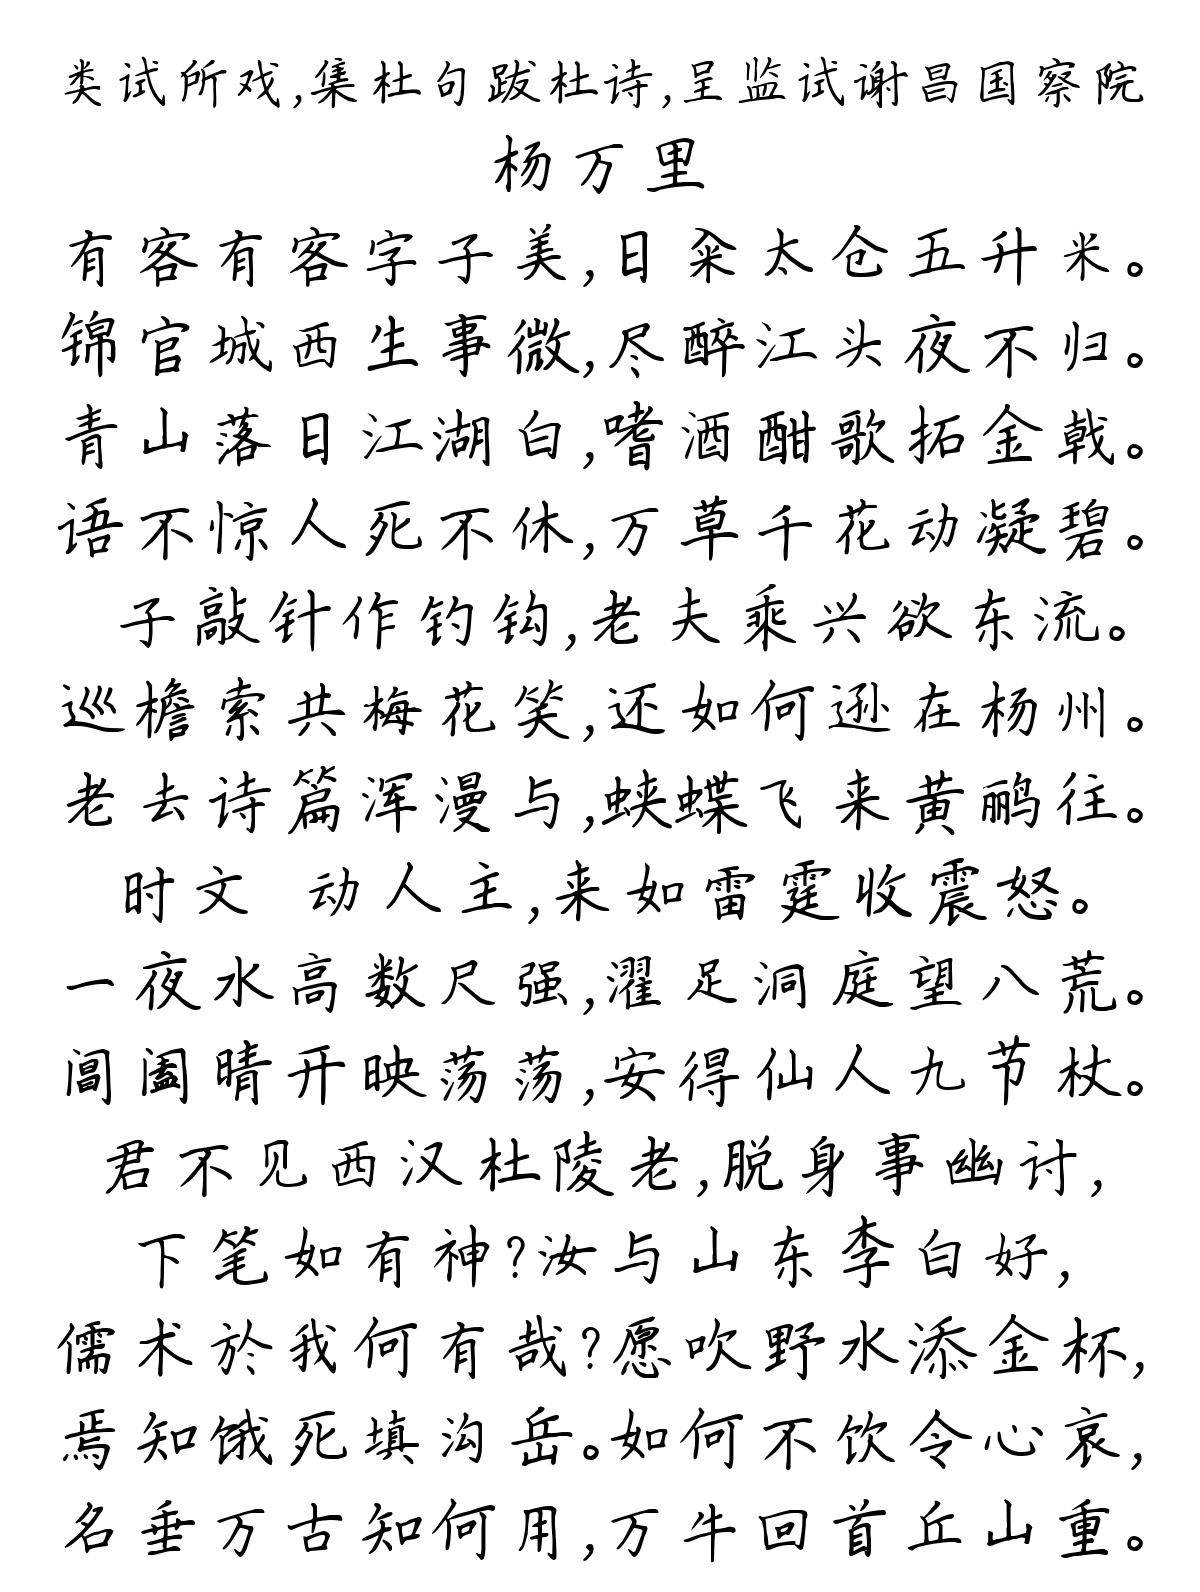 类试所戏,集杜句跋杜诗,呈监试谢昌国察院
杨万里
有客有客字子美,日籴太仓五升米。
锦官城西生事微,尽醉江头夜不归。
青山落日江湖白,嗜酒酣歌拓金戟。
语不惊人死不休,万草千花动凝碧。
子敲针作钓钩,老夫乘兴欲东流。
巡檐索共梅花笑,还如何逊在杨州。
老去诗篇浑漫与,蛱蝶飞来黄鹂往。
时文 动人主,来如雷霆收震怒。
一夜水高数尺强,濯足洞庭望八荒。
阊阖晴开映荡荡,安得仙人九节杖。
君不见西汉杜陵老,脱身事幽讨,
下笔如有神?汝与山东李白好,
儒术於我何有哉?愿吹野水添金杯,
焉知饿死填沟岳。如何不饮令心哀,
名垂万古知何用,万牛回首丘山重。